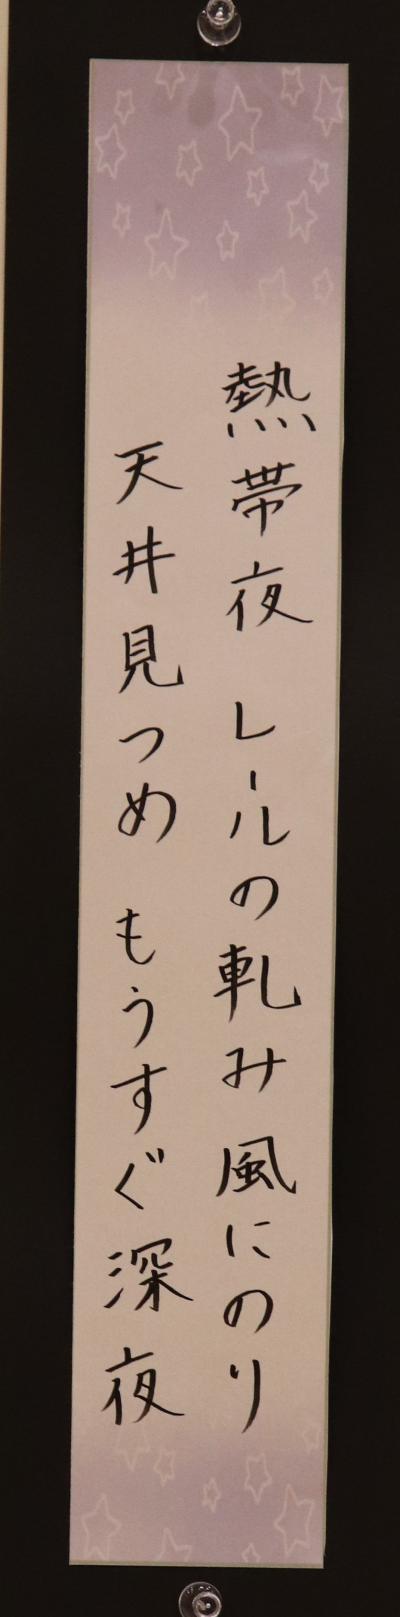 熱帯夜　レールの軋み風にのり
天井見つめ　もうすぐ深夜